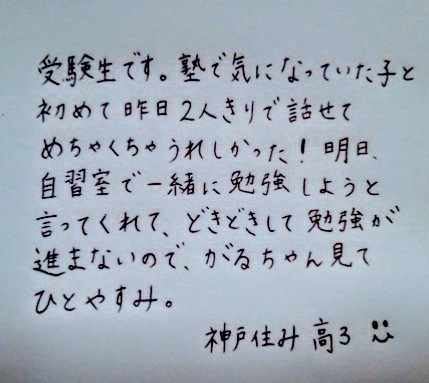 受験生です。塾で気になっていた子と
初めて昨日2人きりで話せて
めちゃくちゃうれしかった！明日、
自習室で一緒に勉強しようと
言ってくれて、どきどきして勉強が
進まないので、がるちゃん見て
ひとやすみ。
神戸住み 高3